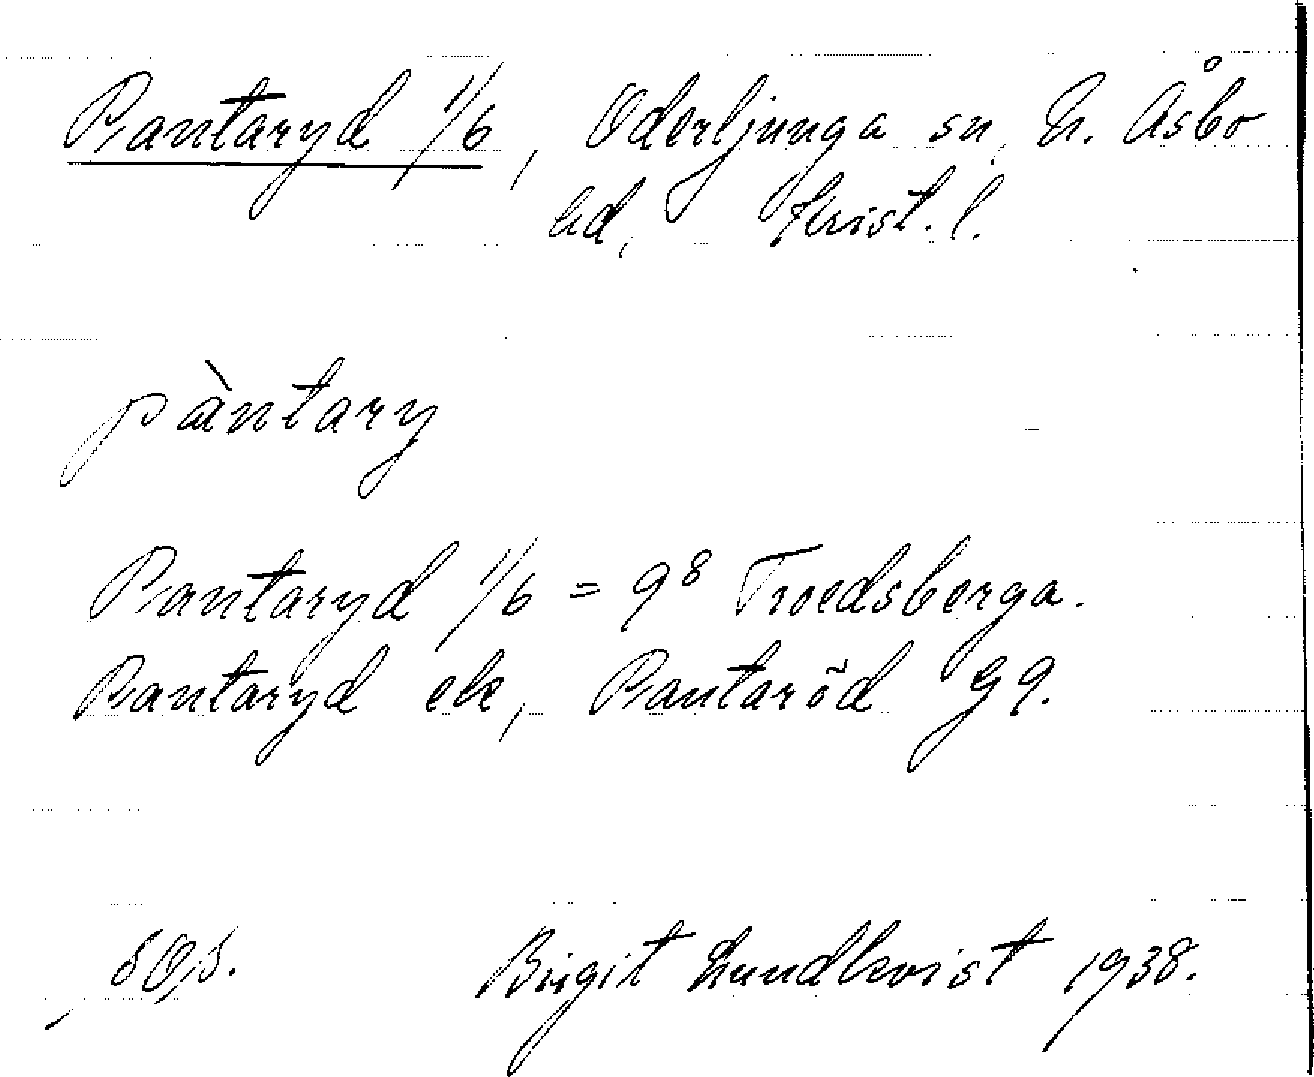 Pantaryd 1/6, Oderljunga sn, N. Åsbo
hd, Krist. l.
pàntary
Pantaryd 1/6 = 9⁸ Troedsberga.
Pantaryd ek, Pantaröd G 9.
Birgit Lundkvist 1938.